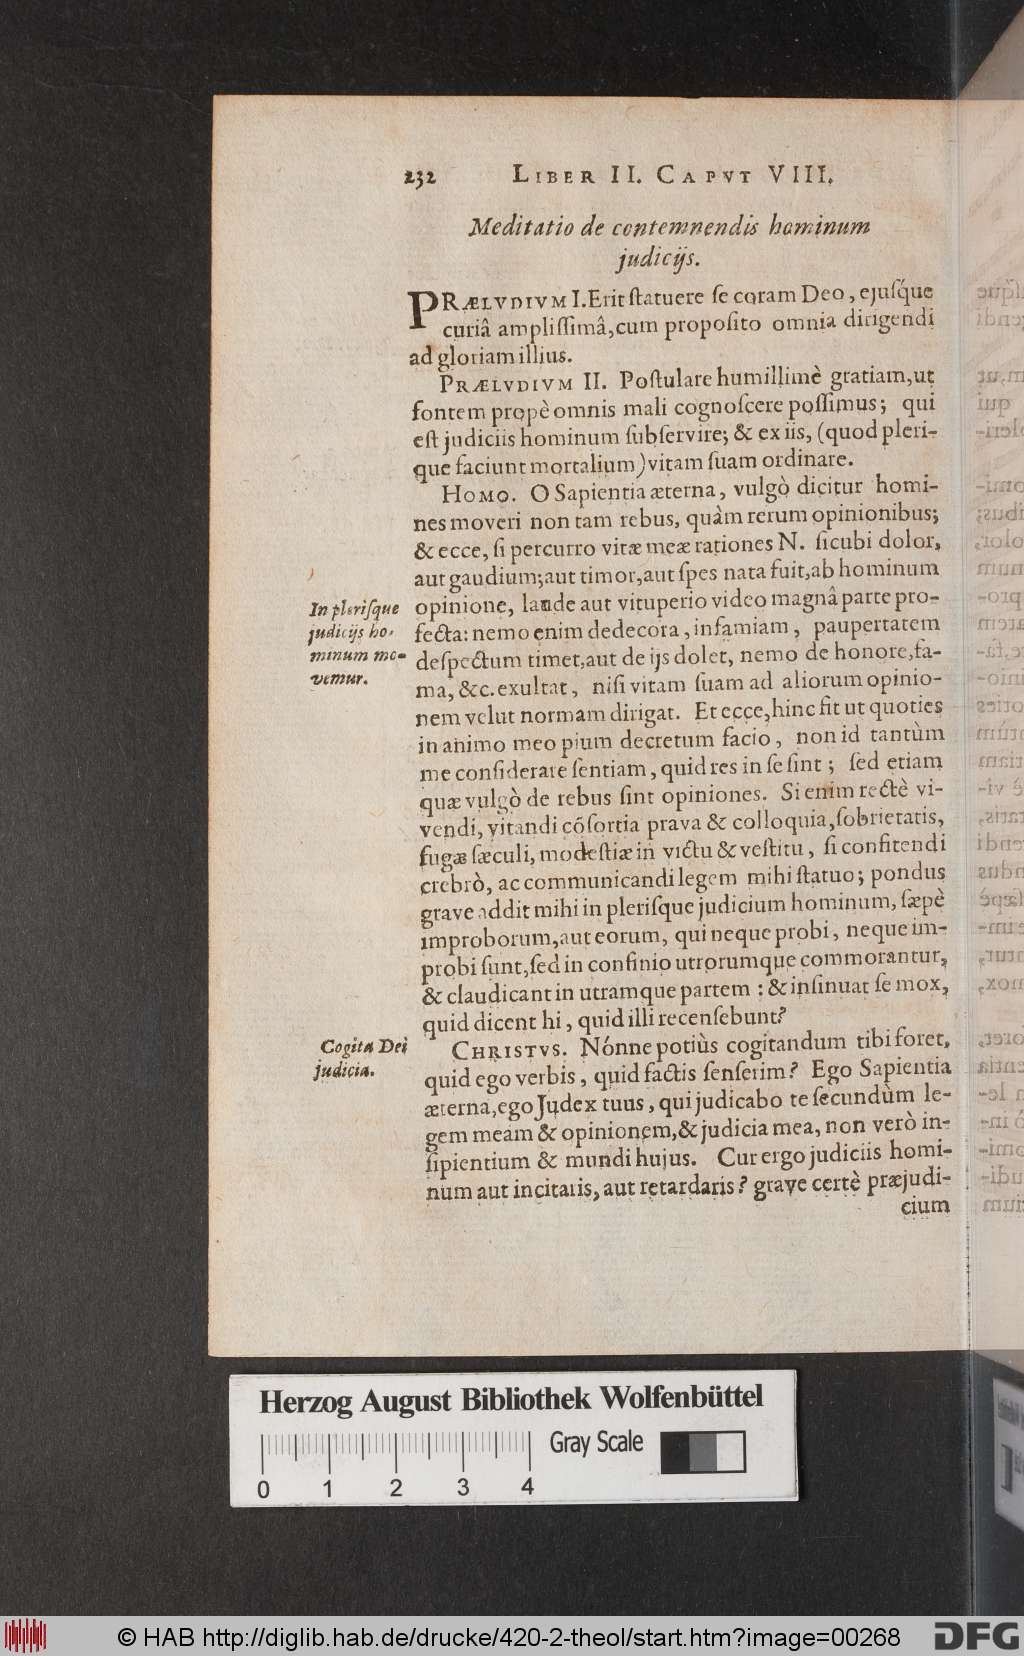 232 LIBER II. CAPVT VIII.
Meditatio de contemnendis hominum
judicijs.
PRÆLVDIVM I. Erit ſtatuere ſe coram Deo, ejuſq́ue
curiâ ampliſſimâ, cum propoſito omnia dirigendi
ad gloriam illius.
PRÆLVDIVM II. Poſtulare humillimè gratiam, ut
fontem propè omnis mali cognoſcere poſſimus; qui
eſt judiciis hominum ſubſervire; & ex iis, (quod pleri-
que faciunt mortalium) vitam ſuam ordinare.
HOMO. O Sapientia æterna, vulgò dicitur homi-
nes moveri non tam rebus, quàm rerum opinionibus;
& ecce, ſi percurro vitæ meæ rationes N. ſicubi dolor,
aut gaudium; aut timor, aut ſpes nata fuit, ab hominum
In pleriſque
judicijs ho-
minum mo-
vemur.
opinione, laude aut vituperio video magnâ parte pro-
fecta: nemo enim dedecora, infamiam, paupertatem
deſpectum timet, aut de ijs dolet, nemo de honore, fa-
ma, &c. exultat, niſi vitam ſuam ad aliorum opinio-
nem velut normam dirigat. Et ecce, hinc fit ut quoties
in animo meo pium decretum facio, non id tantùm
me conſiderare ſentiam, quid res in ſe ſint; ſed etiam
quæ vulgò de rebus ſint opiniones. Si enim rectè vi-
vendi, vitandi cõſortia prava & colloquia, ſobrietatis,
fugæ ſæculi, modeſtiæ in victu & veſtitu, ſi confitendi
crebrò, ac communicandi legem mihi ſtatuo; pondus
grave addit mihi in pleriſque judicium hominum, ſæpè
improborum, aut eorum, qui neque probi, neque im-
probi ſunt, ſed in confinio utrorumque commorantur,
& claudicant in utramque partem: & inſinuat ſe mox,
quid dicent hi, quid illi recenſebunt?
Cogita Dei
judicia.
CHRISTVS. Nónne potiùs cogitandum tibi foret,
quid ego verbis, quid factis ſenſerim? Ego Sapientia
æterna, ego Judex tuus, qui judicabo te ſecundùm le-
gem meam & opinionem, & judicia mea, non verò in-
ſipientium & mundi hujus. Cur ergo judiciis homi-
num aut incitaris, aut retardaris? grave certè præjudi-
cium
Herzog August Bibliothek Wolfenbüttel
Gray Scale
0 1 2 3 4
© HAB http://diglib.hab.de/drucke/420-2-theol/start.htm?image=00268
DFG